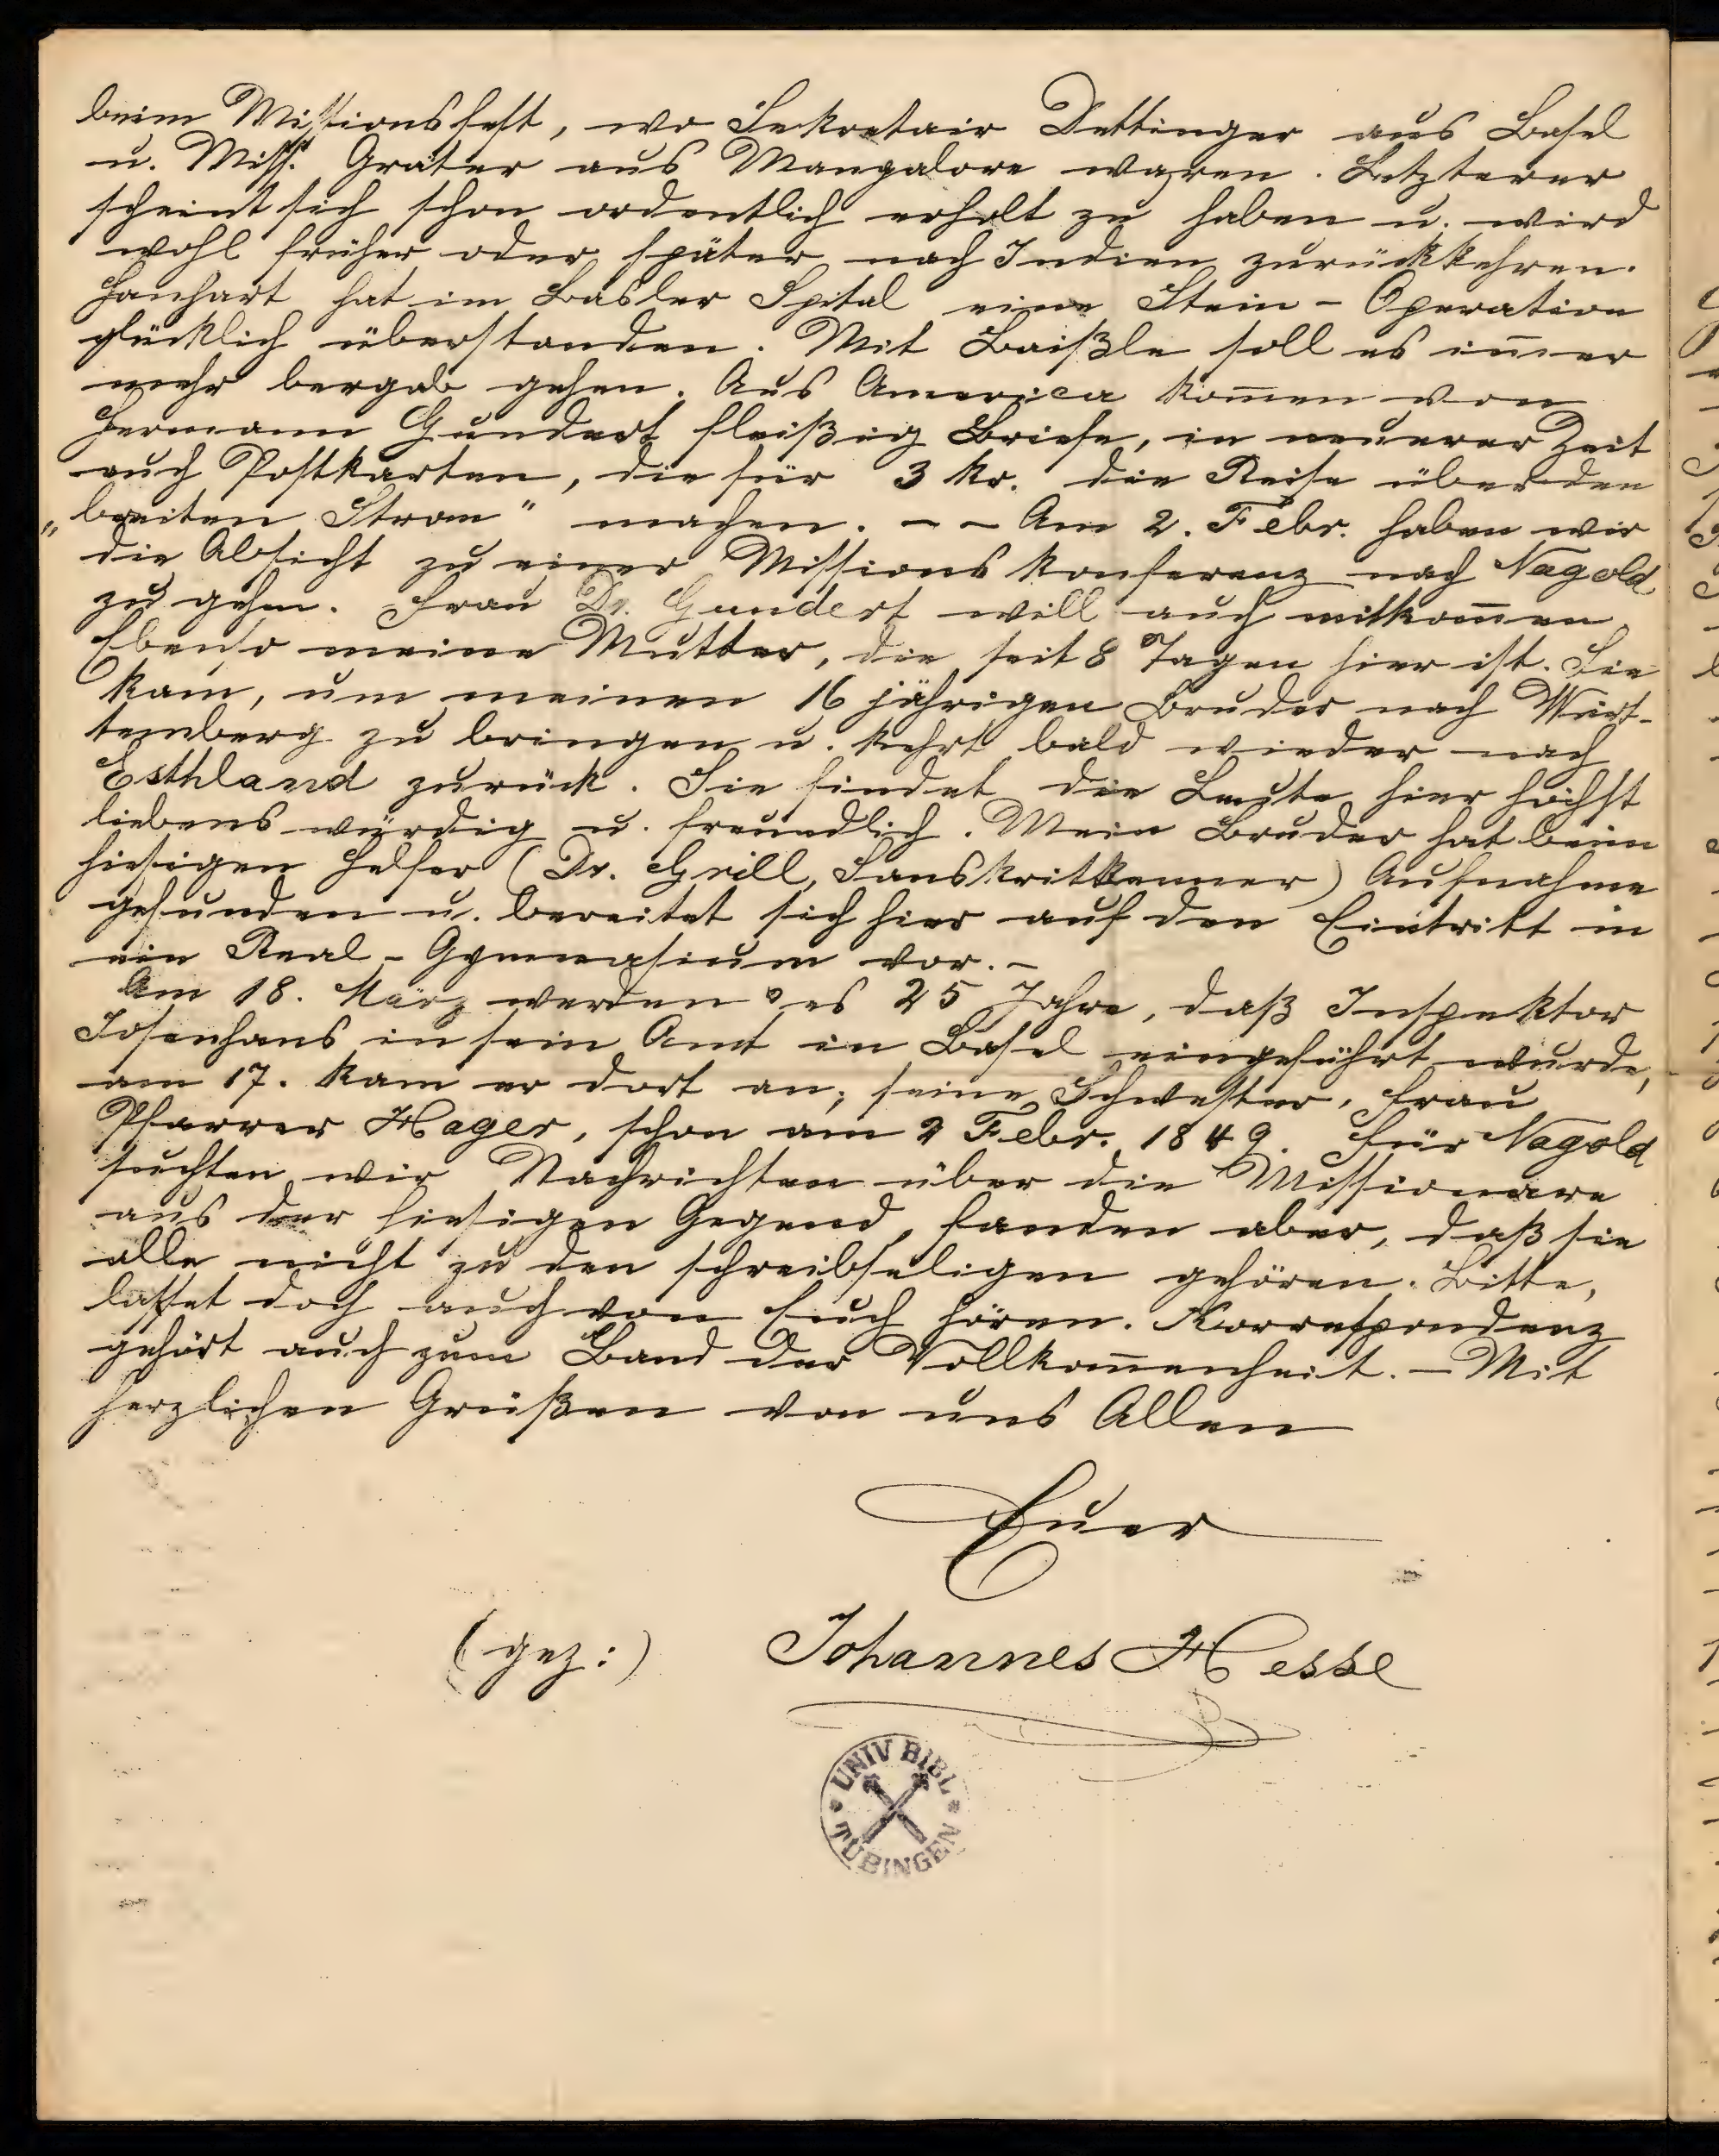 beim Missionsfest, wo Sekretair Dettinger aus Basel
u. Miss. Gräter aus Mangalore waren. Letzterer
scheint sich schon ordentlich erholt zu haben u. wird
wohl früher oder später nach Indien zurückkehren.
Hanhart hat im Basler Spital eine Stein-Operation
glücklich überstanden. Mit Baißle soll es im̅er
mehr bergab gehen. Aus America kom̅en von
Hermann Gundert fleißig Briefe, in neuerer Zeit
auch Postkarten, die für 3 kr. die Reise über den
„breiten Strom" machen. – – Am 2. Febr. haben wir
die Absicht zu einer Missionskonferenz nach Nagold
zu gehen. Frau Dr. Gundert will auch mitkom̅en
Ebenso meine Mutter, die seit 8 Tagen hier ist. Sie
kam, um meinen 16 jährigen Bruder nach Würt-
temberg zu bringen u. kehrt bald wieder nach
Esthland zurück. Sie findet die Leute hier höchst
liebenswürdig u. freundlich. Mein Bruder hat beim
hiesigen Helfer (Dr. Grill, Sanskritkenner) Aufnahme
gefunden u. bereitet sich hier auf den Eintritt in
ein Real-Gymnasium vor. –
Am 18. März werden es 25 Jahre, daß Inspektor
Josenhans in sein Amt in Basel eingeführt wurde,
am 17. kam er dort an; seine Schwester, Frau
Pfarrer Hager, schon am 2 Febr. 1849. Für Nagold
suchten wir Nachrichten über die Missionare
aus der hiesigen Gegend, fanden aber, daß sie
alle nicht zu den schreibseligen gehören. Bitte,
lasset doch auch von Euch hören. Korrespondenz
gehört auch zum Band der Vollkom̅enheit. – Mit
herzlichen Grüßen von uns Allen
Euer
(gez:) Johannes Hesse
UNIV BIBL
TÜBINGEN